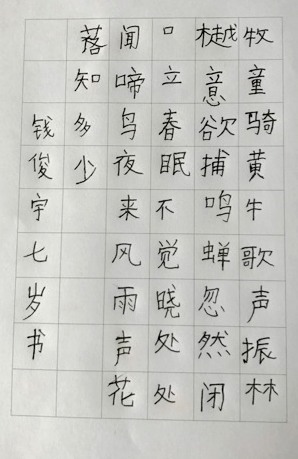 牧童骑黄牛歌声振林
樾意欲捕鸣蝉忽然闭
口立春眠不觉晓处处
闻啼鸟夜来风雨声花
落知多少
钱俊宇七岁书